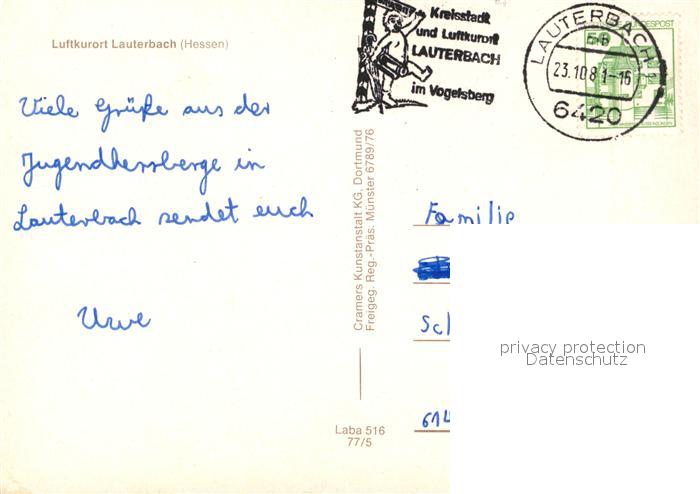 Luftkurort Lauterbach (Hessen)
Viele Grüße aus der
Jugendherberge in
Lauterbach sendet euch
Uwe
Kreisstadt
und Luftkurort
LAUTERBACH
im Vogelsberg
LAUTERBACH
23.10.81-16
6420
BUNDESPOST
Cramers Kunstanstalt KG, Dortmund
Freigeg. Reg.-Präs. Münster 6789/76
Laba 516
77/5
Familie
privacy protection
Datenschutz